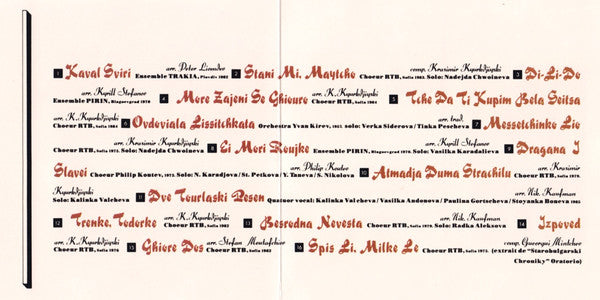 1 Kaval Sviri arr. Peter Liondev Ensemble TRAKIA, Plovdiv 1982 2 Stani Mi, Maytcho comp. Krasimir Kyurkdjiyski Choeur RTB, Sofia 1982. Solo: Nadejda Chwoineva 3 Di-Li-Do
arr. Kyrill Stefanov Ensemble PIRIN, Blagoevgrad 1978 4 More Zajeni Se Ghiouro arr. K. Kyurkdjiyski Choeur RTB, Sofia 1984 5 Tche Da Ti Kupim Bela Seitsa
arr. K. Kyurkdjiyski Choeur RTB, Sofia 1984 6 Ovdoviala Lissitchkata arr. trad. Orchestra Yvan Kirev, 1957. solo: Verka Siderova / Tinka Pescheva 7 Messetchinko Lio
arr. K. Kyurkdjiyski Choeur RTB, Sofia 1975. Solo: Nadejda Chwoineva 8 Ei Mori Roujke arr. Kyrill Stefanov Ensemble PIRIN, Blagoevgrad 1979. Solo: Vasilka Kavedalieva 9 Dragana I
Slavei arr. Philip Koutev Choeur Philip Koutev, 1972. Solo: N. Karadjova / St. Petkova / Y. Taneva / S. Nikolova 10 Almadja Duma Strachilu arr. Krasimir Choeur RTB, Sofia 1979.
Kyurkdjiyski Solo: Kalinka Valcheva 11 Dve Tourlaski Pesen arr. Nik. Kaufman Quatuor vocal: Kalinka Valcheva / Vasilka Andonova / Paulina Gortscheva / Stoyanka Boneva 1985
12 Trenke, Todorke arr. K. Kyurkdjiyski Choeur RTB, Sofia 1982 13 Besrodna Nevesta arr. Nik. Kaufman Choeur RTB, Sofia 1982. Solo: Radka Aleksova 14 Izpoved
arr. K. Kyurkdjiyski Choeur RTB, Sofia 1976 15 Ghiore Dos arr. Stefan Moutafchiev Choeur RTB, Sofia 1982 16 Spis Li, Milke Le comp. Gueorgui Mintchev Choeur RTB, Sofia 1975. (extrait de "Starobulgarski
Chroniky" Oratorio)